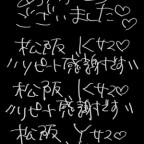 ございました♡
松阪 K女♡
〃リピート感謝です〃
松阪 K女♡
〃リピート感謝です〃
松阪 Y女♡